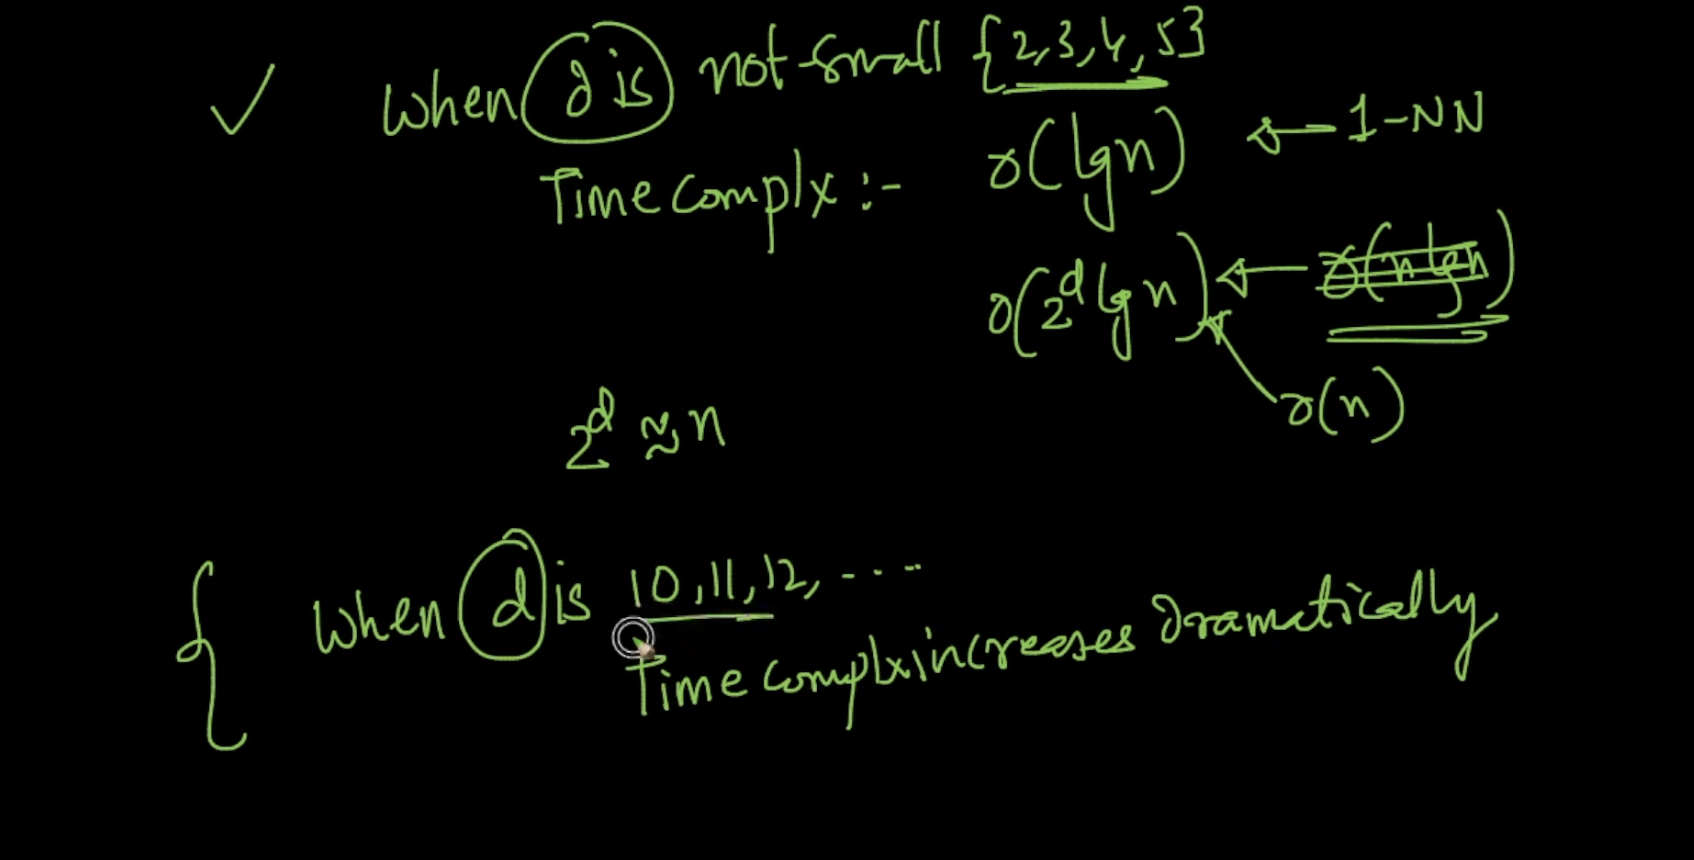 ✓ When d is not small {2,3,4,5}
Time complx :- O(lgn) ← 1-NN
O(2^d lg n) ← O(n lgn)
O(n)
2^d ≈ n
{ When d is 10,11,12,....
Time complx increases Dramatically